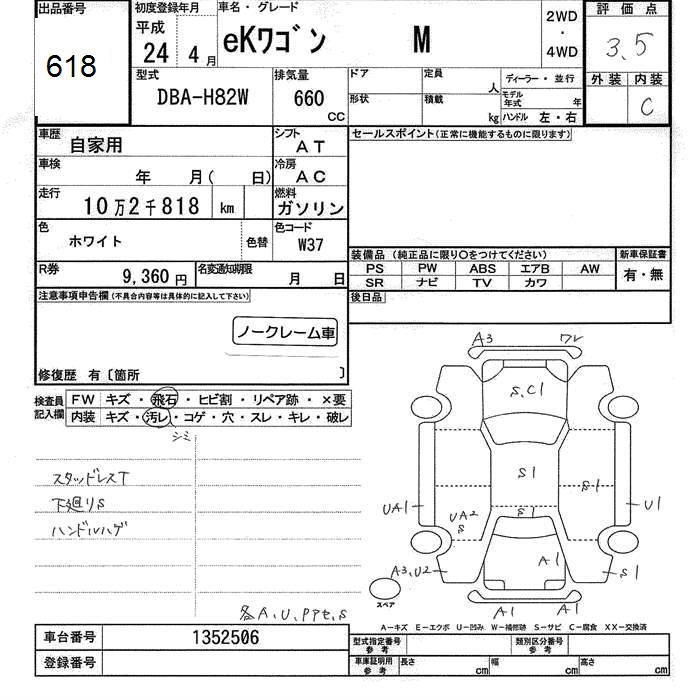 出品番号
618
初度登録年月
平成
24 年 4 月
車名・グレード
eKワゴン M
2WD
・
4WD
評価点
3.5
外装 内装
C
型式
DBA-H82W
排気量
660
CC
ドア
定員
人
ディーラー・並行
形状
積載
kg
モデル年式 年
ハンドル 左・右
車歴
自家用
シフト
AT
セールスポイント(正常に機能するものに限ります)
車検
年 月( 日)
冷房
AC
走行
10万2千818 km
燃料
ガソリン
色
ホワイト
色替
色コード
W37
装備品 (純正品に限り〇をつけてください)
新車保証書
PS PW ABS エアB AW
SR ナビ TV カワ
有・無
R券
9,360円
名変通知期限
月 日
後日品
注意事項申告欄(不具合内容等は具体的に記入して下さい)
ノークレーム車
修復歴 有〔箇所 〕
検査員記入欄
FW キズ・飛石・ヒビ割・リペア跡・×要
内装 キズ・汚レ・コゲ・穴・スレ・キレ・破レ
シミ
スタッドレスT
下廻りS
ハンドルハゲ
各A,U,PPセ,S
A3 ワレ
S,C1
S1
S1
S1
UA1
UA2
S
U1
A3,U2
A1
S1
A1 A1
スペア
A-キズ E-エクボ U-凹み W-補修跡 S-サビ C-腐食 XX-交換済
車台番号
1352506
登録番号
型式指定番号
参考
類別区分番号
参考
車庫証明用
参考
長さ cm
幅 cm
高さ cm